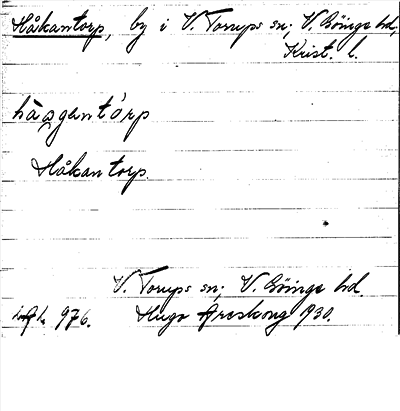 Håkantorp, by i V. Torups sn; V. Göinge hd,
Krist. l.
Håkantorp.
V. Torups sn; V. Göinge hd.
976. Hugo Areskoug 1930.